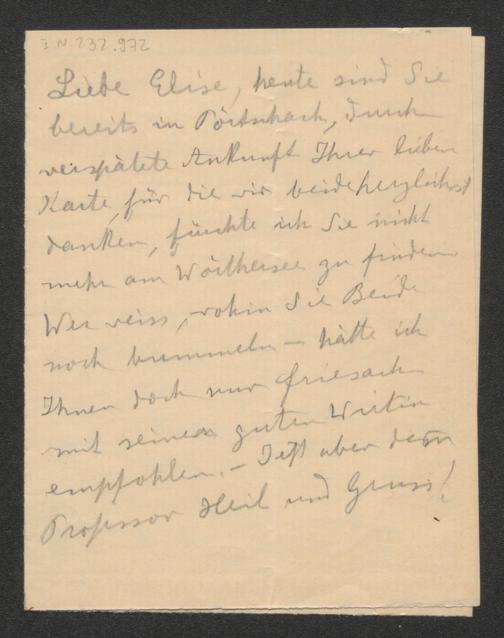 I.N. 232.972
Liebe Elise, heute sind Sie
bereits in Pörtschach, durch
verspätete Ankunft Ihrer lieben
Karte, für die wir beide herzlichst
danken, fürchte ich Sie nicht
mehr am Wörthersee zu finden
Wer weiss, wohin Sie Beide
noch bummeln – hätte ich
Ihnen doch nur Friesach
mit seiner guten Wirtin
empfohlen. – Jetzt aber dem
Professor Heil und Gruss!